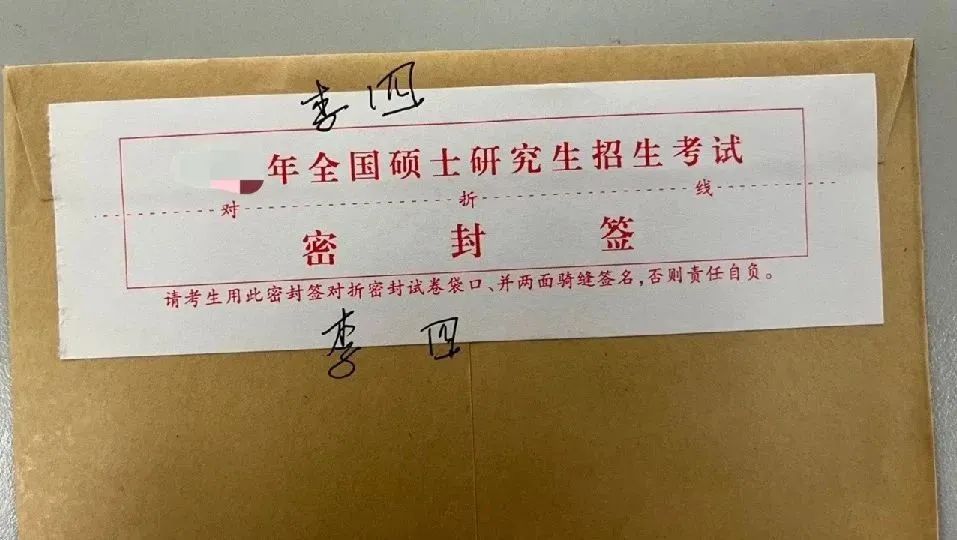 李四
年全国硕士研究生招生考试
对 折 线
密封签
请考生用此密封签对折密封试卷袋口、并两面骑缝签名,否则责任自负。
李四